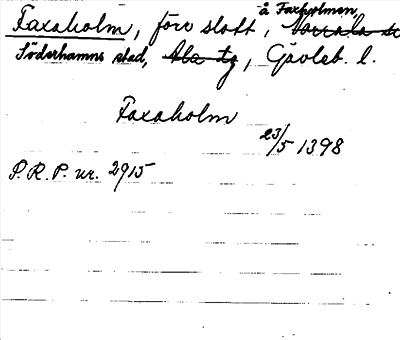 å Faxholmen,
Faxaholm, förr slott, Norrala sn
Söderhamns stad, Ala tg, Gävleb. l.
Faxaholm
23/5 1398
P.R.P. nr. 2915